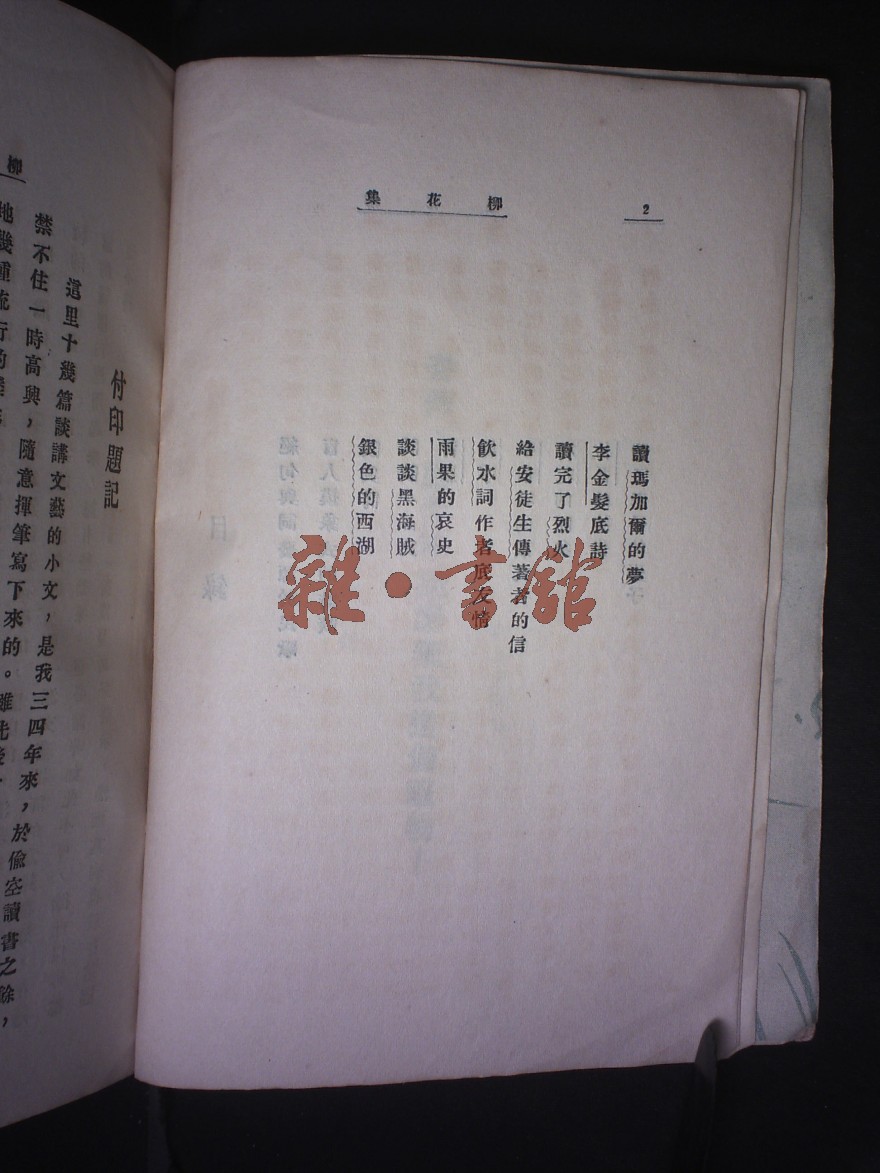 柳花集
2
讀瑪加爾的夢
李金髮底詩
讀完了烈火
給安徒生傳著者的信
飲水詞作者底友情
雨果的哀史
談談黑海賊
銀色的西湖
雜·書舘
柳
付印題記
這里十幾篇談講文藝的小文，是我三四年來，於偸空讀書之餘，
禁不住一時高興，隨意揮筆寫下來的。雖
地幾種流行的
目錄